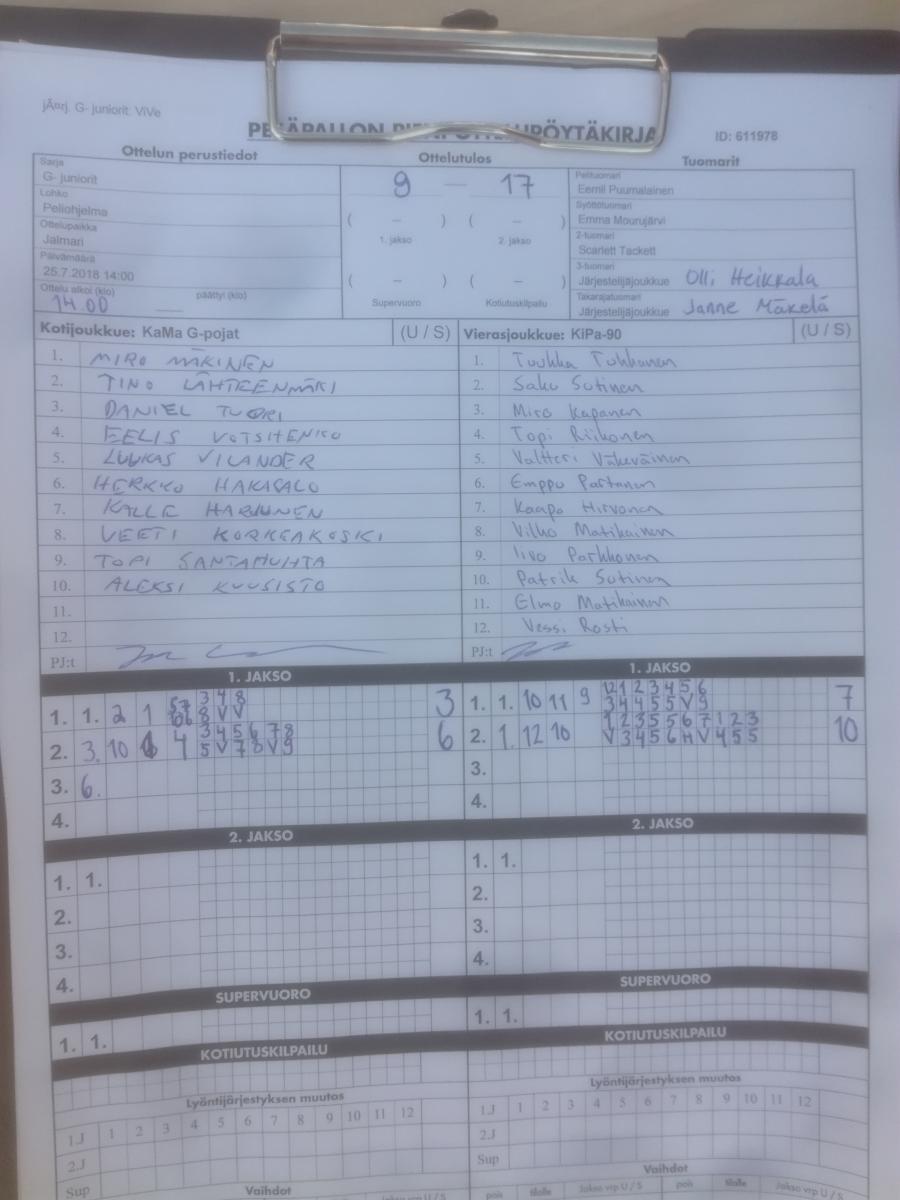 jÃ¤rj. G- juniorit: ViVe
ID: 611978
Ottelun perustiedot
Ottelutulos
Tuomarit
Sarja
G- juniorit
Lohko
Peliohjelma
Ottelupaikka
Jalmari
Päivämäärä
25.7.2018 14:00
Ottelu alkoi (klo) päättyi (klo)
14.00
9 — 17
( – ) ( – )
1. jakso 2. jakso
( – ) ( – )
Supervuoro Kotiutuskilpailu
Pelituomari
Eemil Puumalainen
Syöttötuomari
Emma Mourujärvi
2-tuomari
Scarlett Tackett
3-tuomari
Järjestelijäjoukkue Olli Heikkala
Takarajatuomari
Järjestelijäjoukkue Janne Mäkelä
Kotijoukkue: KaMa G-pojat (U / S)
1. MIRO MÄKINEN
2. TINO LÄHTEENMÄKI
3. DANIEL TUORI
4. EELIS
5. LUUKAS VILANDER
6. HERKKO HAKASALO
7. KALLE HARJUNEN
8. VEETI KORKEAKOSKI
9. TOPI SANTAHUHTA
10. ALEKSI KUUSISTO
11.
12.
PJ:t
Vierasjoukkue: KiPa-90 (U / S)
1. Tuukka Tuhkanen
2. Saku Sutinen
3. Miro Kapanen
4. Topi Riikonen
5. Valtteri Väkeväinen
6. Emppu Partanen
7. Kaapo Hirvonen
8. Vilho Matikainen
9. Iivo Parkkonen
10. Patrik Sutinen
11. Elmo Matikainen
12. Vessi Rosti
PJ:t
1. JAKSO
3 4 8
1. 1. 2 1 8 V V 3
3 4 5 6 7 8
2. 3. 10 4 5 V 7 8 V 9 6
3. 6.
4.
1. JAKSO
12 1 2 3 4 5 6
1. 1. 10 11 9 3 4 4 5 5 V 9 7
1 2 3 5 5 6 7 1 2 3
2. 1. 12 10 V 3 4 5 6 H V 4 5 5 10
3.
4.
2. JAKSO
1. 1.
2.
3.
4.
2. JAKSO
1. 1.
2.
3.
4.
SUPERVUORO
1. 1.
SUPERVUORO
1. 1.
KOTIUTUSKILPAILU
KOTIUTUSKILPAILU
Lyöntijärjestyksen muutos
1.J 1 2 3 4 5 6 7 8 9 10 11 12
2.J
Sup
Vaihdot
Jakso vrp U / S
Lyöntijärjestyksen muutos
1.J 1 2 3 4 5 6 7 8 9 10 11 12
2.J
Sup
Vaihdot
pois tilalle Jakso vrp U / S pois tilalle Jakso vrp U / S